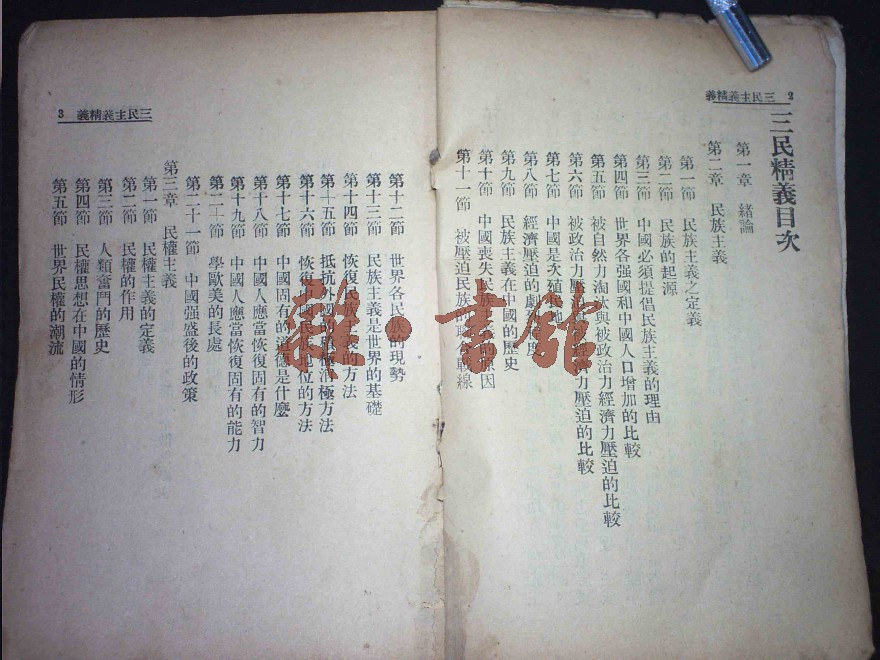 義精義主民三 2
三民精義目次
第一章 緒論
第二章 民族主義
第一節 民族主義之定義
第二節 民族的起源
第三節 中國必須提倡民族主義的理由
第四節 世界各强國和中國人口增加的比較
第五節 被自然力淘汰與被政治力經濟力壓迫的比較
第六節 被政治力壓迫 經濟力壓迫的比較
第七節 中國是次殖民地
第八節 經濟壓迫的劇 度
第九節 民族主義在中國的歷史
第十節 中國喪失民族主義的原因
第十一節 被壓迫民族 聯 戰線
3 義精義主民三
第十二節 世界各民族的現勢
第十三節 民族主義是世界的基礎
第十四節 恢復民族主義的方法
第十五節 抵抗外國的積極消極方法
第十六節 恢復中國民族地位的方法
第十七節 中國固有的道德是什麼
第十八節 中國人應當恢復固有的智力
第十九節 中國人應當恢復固有的能力
第二十節 學歐美的長處
第二十一節 中國强盛後的政策
第三章 民權主義
第一節 民權主義的定義
第二節 民權的作用
第三節 人類奮鬥的歷史
第四節 民權思想在中國的情形
第五節 世界民權的潮流
雜·書館